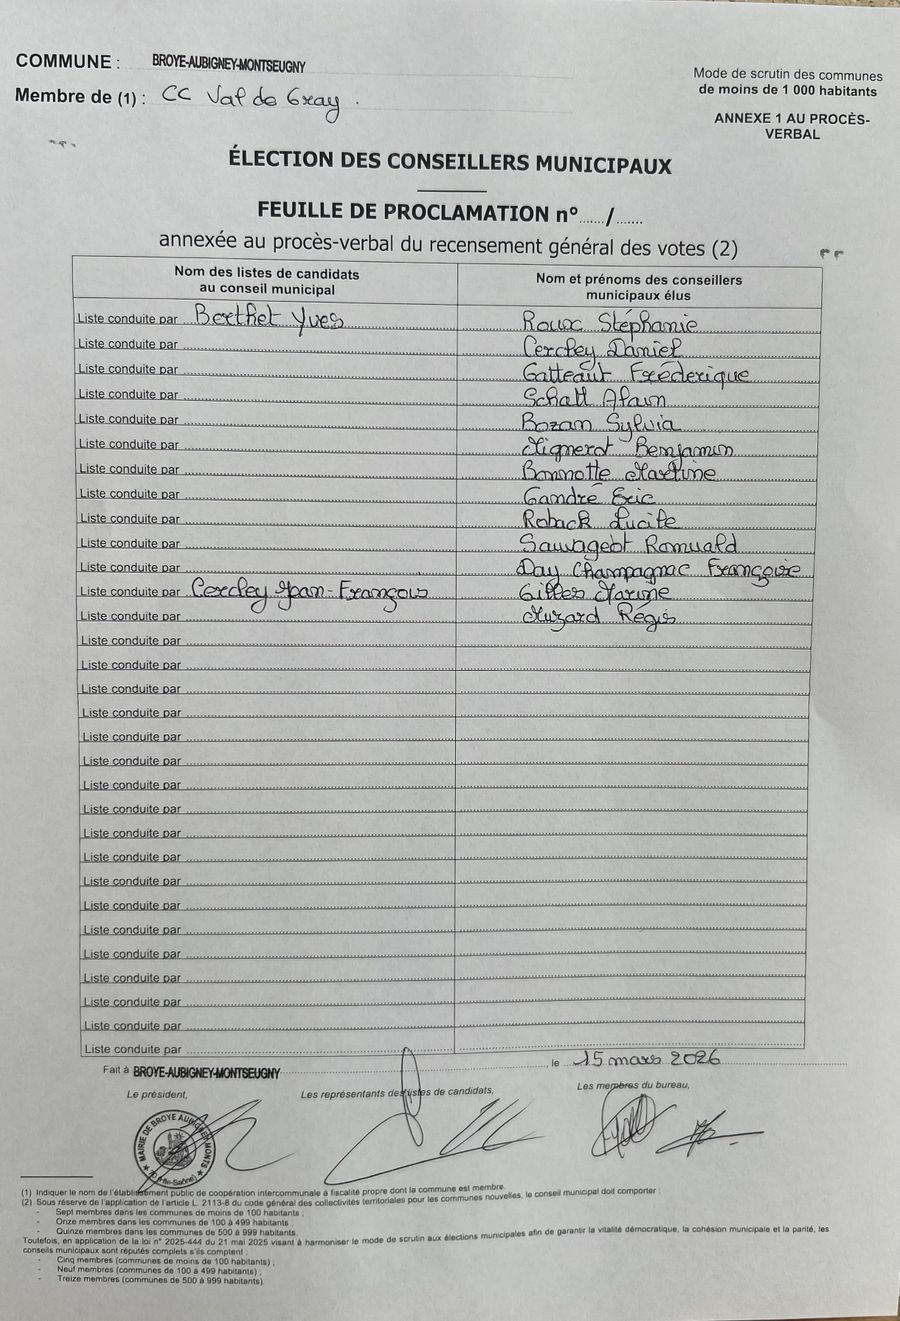 COMMUNE : BROYE-AUBIGNEY-MONTSEUGNY
Membre de (1) : CC Val de Gray.
Mode de scrutin des communes
de moins de 1 000 habitants
ANNEXE 1 AU PROCÈS-
VERBAL
ÉLECTION DES CONSEILLERS MUNICIPAUX
FEUILLE DE PROCLAMATION n° ...... / ......
annexée au procès-verbal du recensement général des votes (2)
Nom des listes de candidats
au conseil municipal
Nom et prénoms des conseillers
municipaux élus
Liste conduite par Berthet Yves Roux Stéphanie
Liste conduite par Cerchey Daniel
Liste conduite par Gatteaut Fréderique
Liste conduite par Schatt Alain
Liste conduite par Bozan Sylvia
Liste conduite par Mignerot Benjamin
Liste conduite par Bonnotte Martine
Liste conduite par Gandré Eric
Liste conduite par Roback Lucile
Liste conduite par Sauvageot Romuald
Liste conduite par Day Champagnac Françoise
Liste conduite par Cerchey Jean-François Gilles Marine
Liste conduite par Muzard Régis
Liste conduite par
Liste conduite par
Liste conduite par
Liste conduite par
Liste conduite par
Liste conduite par
Liste conduite par
Liste conduite par
Liste conduite par
Liste conduite par
Liste conduite par
Liste conduite par
Liste conduite par
Liste conduite par
Liste conduite par
Liste conduite par
Liste conduite par
Liste conduite par
Fait à BROYE-AUBIGNEY-MONTSEUGNY, le 15 mars 2026
Le président, Les représentants des listes de candidats, Les membres du bureau,
MAIRIE DE BROYE AUBIGNEY MONTS
70 (Hte-Saône)
(1) Indiquer le nom de l'établissement public de coopération intercommunale à fiscalité propre dont la commune est membre.
(2) Sous réserve de l'application de l'article L. 2113-8 du code général des collectivités territoriales pour les communes nouvelles, le conseil municipal doit comporter :
- Sept membres dans les communes de moins de 100 habitants ;
- Onze membres dans les communes de 100 à 499 habitants
- Quinze membres dans les communes de 500 à 999 habitants.
Toutefois, en application de la loi n° 2025-444 du 21 mai 2025 visant à harmoniser le mode de scrutin aux élections municipales afin de garantir la vitalité démocratique, la cohésion municipale et la parité, les
conseils municipaux sont réputés complets s'ils comptent :
- Cinq membres (communes de moins de 100 habitants) ;
- Neuf membres (communes de 100 à 499 habitants) ;
- Treize membres (communes de 500 à 999 habitants).